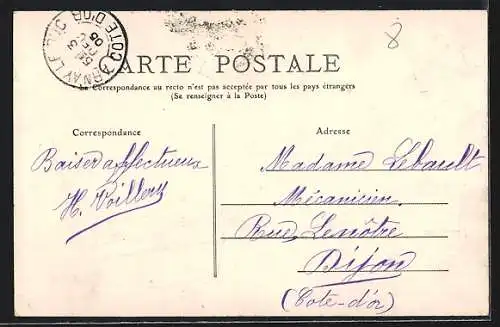 8
ARNAY LE DUC
CÔTE D'OR
CARTE POSTALE
La Correspondance au recto n'est pas acceptée par tous les pays étrangers
(Se renseigner à la Poste)
Correspondance
Baiser affectueux
H. Voillery
Adresse
Madame Lebault
Mécanicien
Rue Lenôtre
Dijon
(Côte-d'or)